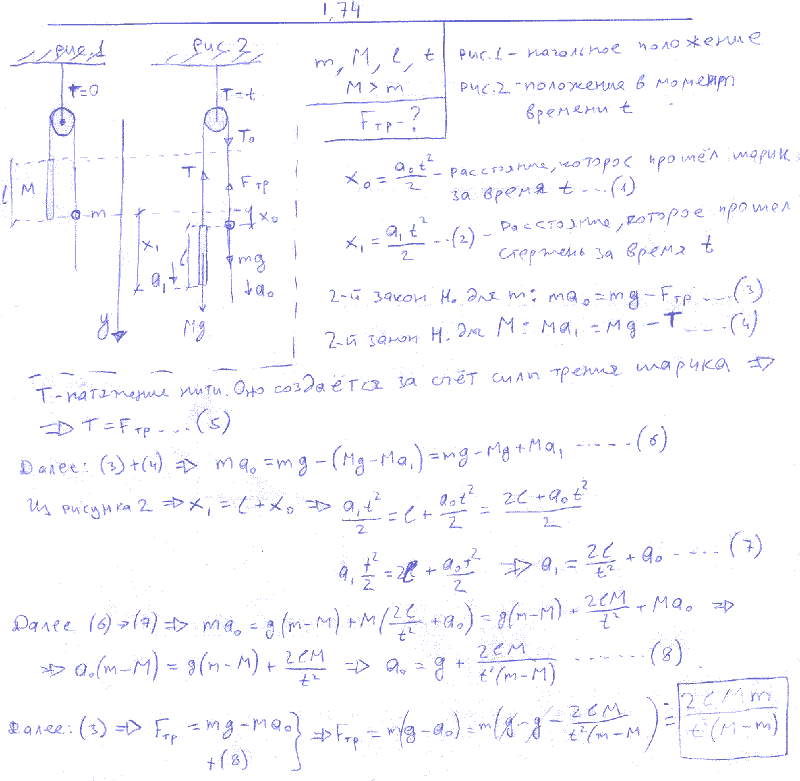 1,74
рис.1 рис 2
m, M, l, t
M > m
Fтр - ?
рис.1 - начольное положение
рис.2 - положение в момент
времени t
T=0 T=t
T₀
T Fтр
l M m x₀
x₁ l mg
a₁ a₀
Mg
y
x₀ = a₀t²/2 - расстояние, которое прошёл шарик
за время t ... (1)
x₁ = a₁t²/2 ...(2) - Расстояние, которое прошел
стержень за время t
2-й закон Н. для m: ma₀ = mg - Fтр .... (3)
2-й закон Н. для M: Ma₁ = Mg - T .... (4)
T - натяжение нити. Оно создаётся за счёт силы трения шарика ⇒
⇒ T = Fтр .... (5)
Далее: (3)+(4) ⇒ ma₀ = mg - (Mg - Ma₁) = mg - Mg + Ma₁ ..... (6)
Из рисунка 2 ⇒ x₁ = l + x₀ ⇒ a₁t²/2 = l + a₀t²/2 = (2l + a₀t²)/2
a₁ t²/2 = l + a₀t²/2 ⇒ a₁ = 2l/t² + a₀ ..... (7)
Далее (6)→(7) ⇒ ma₀ = g(m-M) + M(2l/t² + a₀) = g(m-M) + 2lM/t² + Ma₀ ⇒
⇒ a₀(m-M) = g(m-M) + 2lM/t² ⇒ a₀ = g + 2lM/(t²(m-M)) ...... (8)
Далее: (3) ⇒ Fтр = mg - ma₀ + (8) } ⇒ Fтр = m(g-a₀) = m(g - g - 2lM/(t²(m-M)) = 2lMm/(t²(M-m))